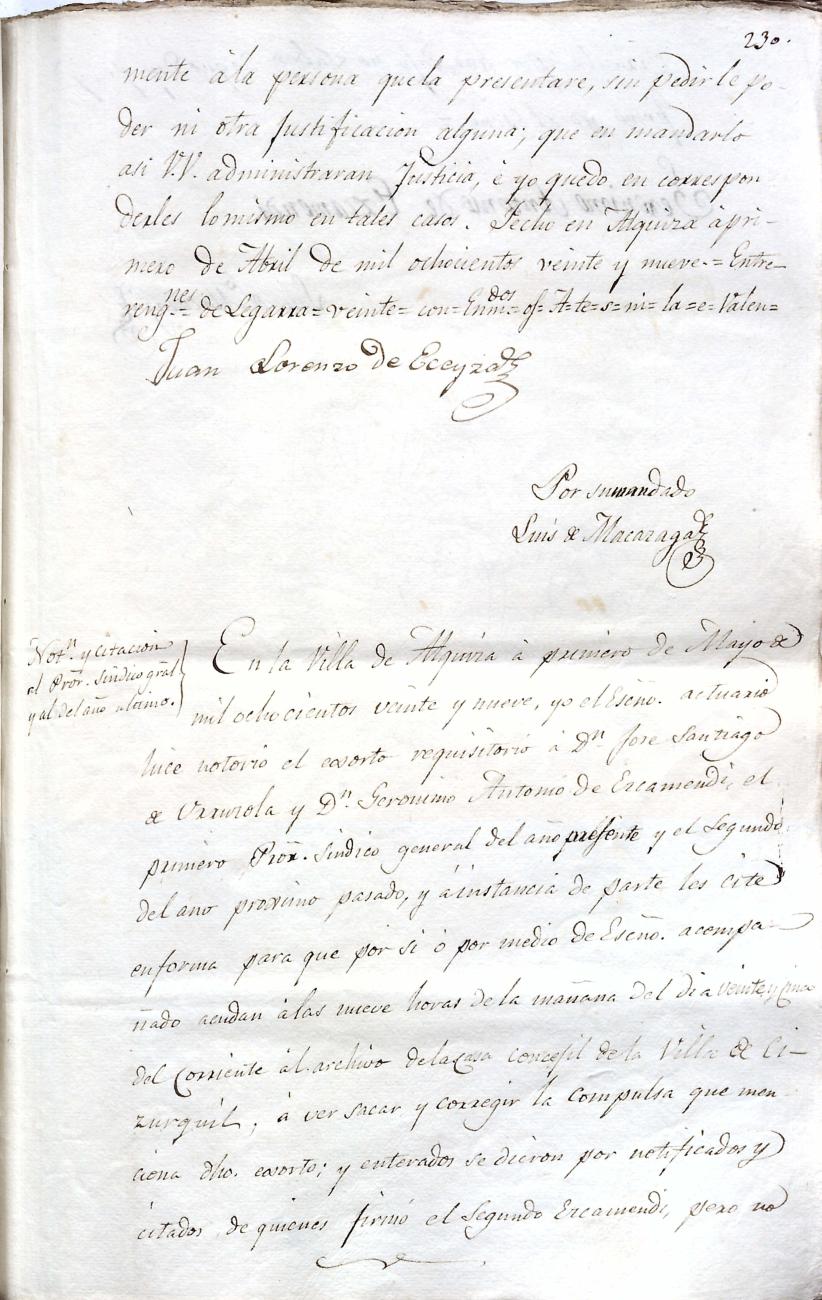 230.
mente à la persona que la presentare, sin pedirle po-
der ni otra Justificacion alguna; que en mandarlo
asi V.V. administraran Justicia, è yo quedo en correspon
derles lo mismo en tales casos. Fecho en Alquiza à pri-
mero de Abril de mil ochocientos veinte y nueve.= Entre
reng.nes= de Legarra= veinte= con= Enm.dos= of= A= te= s= ni= la= e= Valen=
Juan Lorenzo de Eceyza
Por su mandado
Luis de Macazaga
Not.n y citacion
al Pror. Sindico gral
y al del año ultimo.
En la Villa de Alquiza à primero de Mayo de
mil ochocientos veinte y nueve, yo el Esño. actuario
hice notorio el exorto requisitorio à D.n Jose Santiago
de Urruzola y D.n Geronimo Antonio de Ercamendi, el
primero Pror. Sindico general del año presente y el Segundo
del año proximo pasado, y à instancia de parte les cite
en forma para que por si ò por medio de Esño. acompa-
ñado acudan à las nueve horas de la mañana del dia veinte y cinco
del corriente al archivo de la casa concegil de la Villa de Ci-
zurquil, à ver sacar y corregir la compulsa que men
ciona dho. exorto; y enterados se dieron por notificados y
citados, de quienes firmó el Segundo Ercamendi, pero no